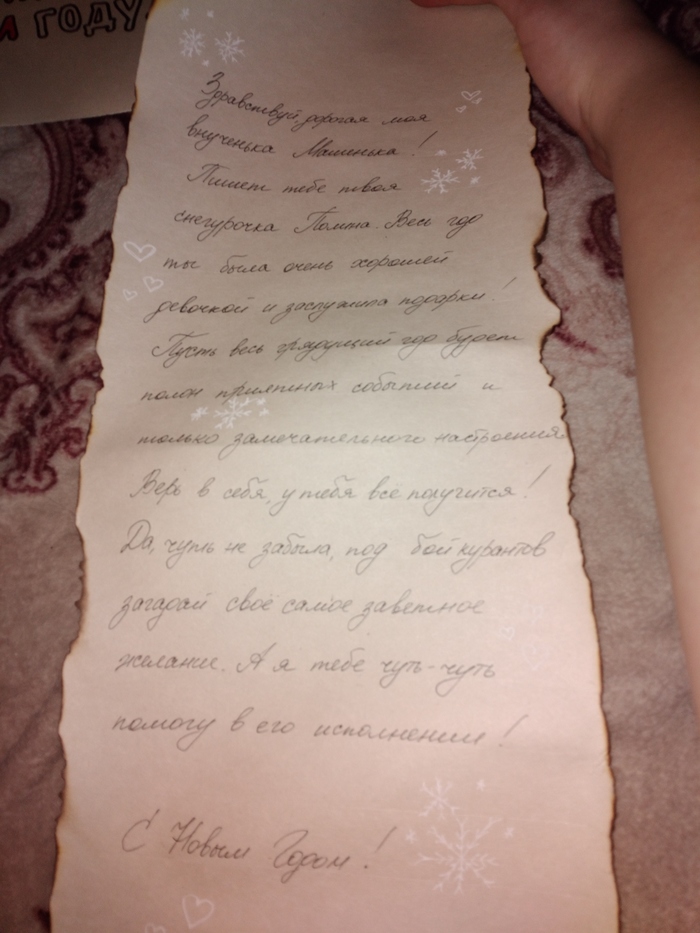 И ГОДУ
Здравствуй, дорогая моя
внученька Машенька!
Пишет тебе твоя
снегурочка Полина. Весь год
ты была очень хорошей
девочкой и заслужила подарки!
Пусть весь грядущий год будет
полон приятных событий и
только замечательного настроения.
Верь в себя, у тебя всё получится!
Да, чуть не забыла, под бой курантов
загадай своё самое заветное
желание. А я тебе чуть-чуть
помогу в его исполнении!
С Новым Годом!